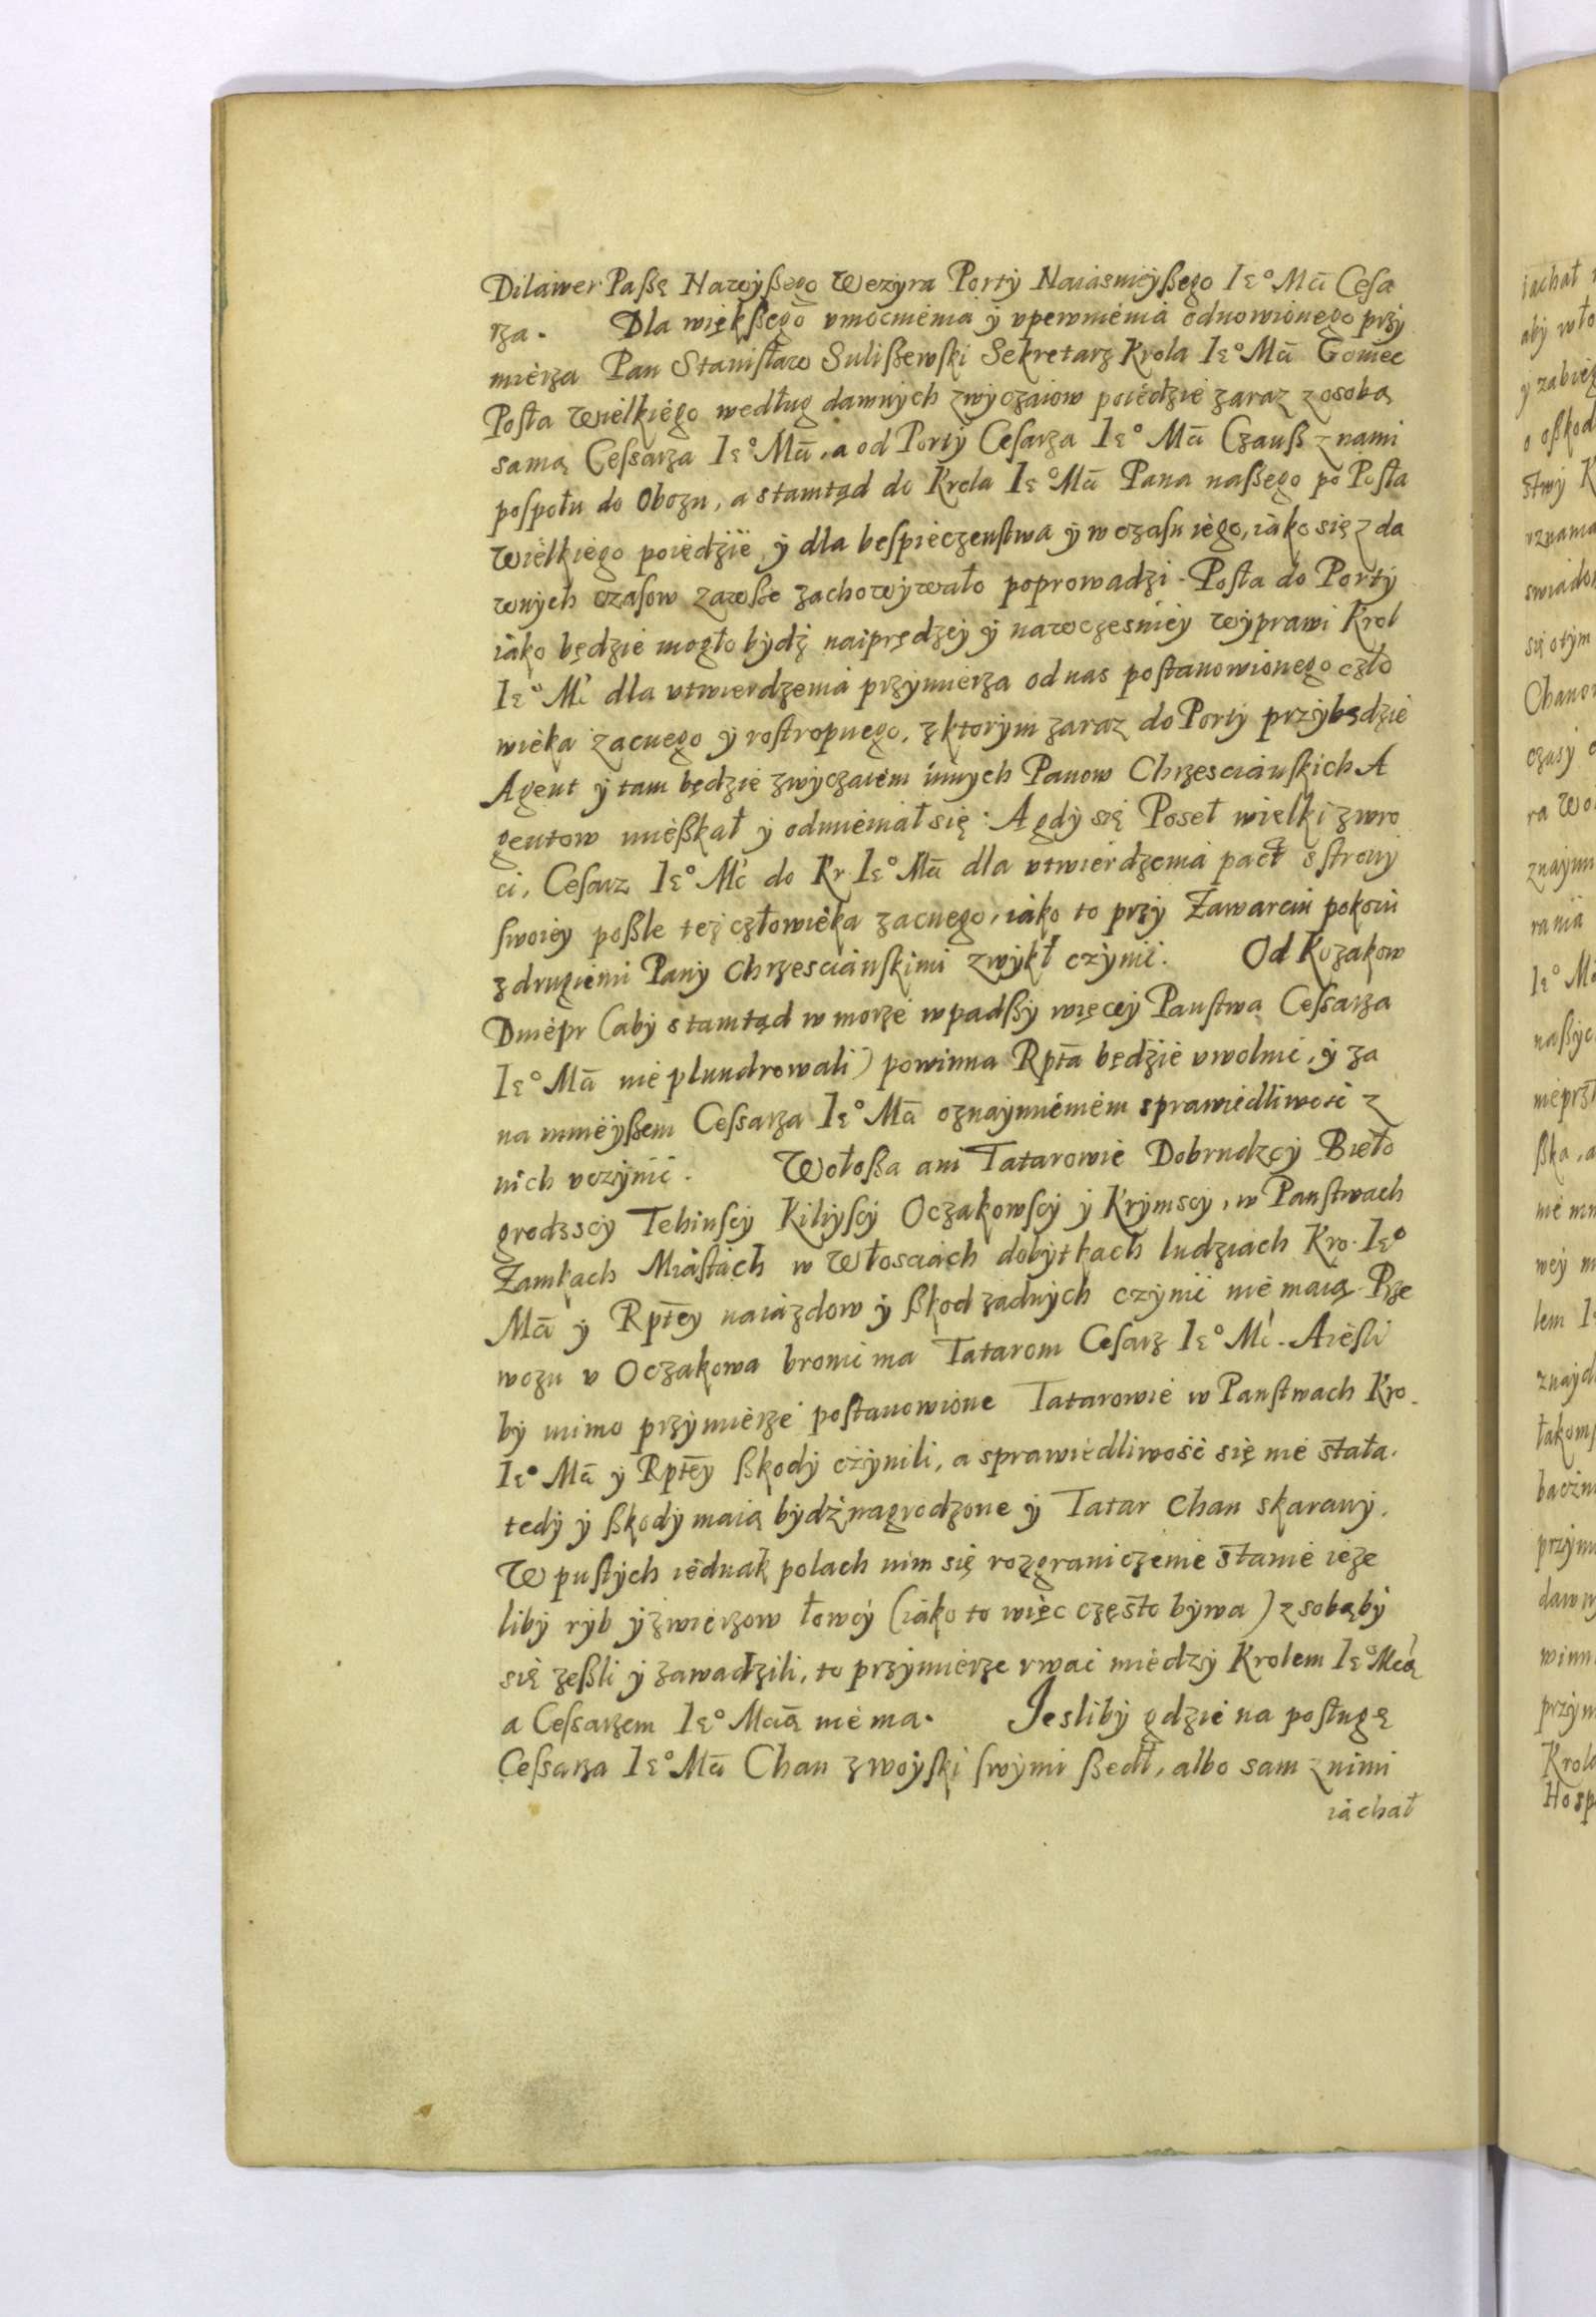 Dilawer Paßę Nawyßego Wezyra Porty Naiasnieyßego Ie° Mā Cesa
rza. Dla większego vmocnienia y vpewnienia odnowionego przy
mierza Pan Stanisław Sulißewski Sekretarz Krola Ie° Mā Goniec
Posła Wielkiego według dawnych zwyczaiow poiedzie zaraz z osobą
samą Cessarza Ie° Mā, a od Porty Cesarza Ie° Mā Czauß z nami
pospołu do Obozu, a stamtąd do Krola Ie° Mā Pana naßego po Posła
Wielkiego poiedzie, y dla bespieczenstwa y wczasu iego, iako się z da
wnych czasow zawße zachowywało poprowadzi. Posła do Porty
iako będzie mogło bydź naiprędzey y nawczesniey wyprawi Krol
Ie° Mć dla vtwierdzenia przymierza od nas postanowionego czło
wieka zacnego y rostropnego, z ktorym zaraz do Porty przybędzie
Agent y tam będzie zwyczaiem innych Panow Chrzescianskich A
gentow mießkał y odmieniał się: A gdy się Poseł wielki zwro
ci, Cesarz Ie° Mć do Kr. Ie° Mā dla vtwierdzenia pact s strony
swoiey poßle też człowieka zacnego, iako to przy Zawarciu pokoiu
z drugiemi Pany Chrzescianskimi zwykł czynić. Od Kozakow
Dniepr (aby stamtąd w morze wpadßy więcey Panstwa Cessarza
Ie° Mā nie plundrowali) powinna Rptā będzie vwolnić, y za
na mnieyßem Cessarza Ie° Mā oznaymieniem sprawiedliwość z
nich vczynić. Wołoßa ani Tatarowie Dobrudzcy Bieło
grodzscy Tehinscy Kiliyscy Oczakowscy y Krymscy, w Panstwach
Zamkach Miastach w Włosciach dobytkach ludziach Kro. Ie°
Mā y Rptēy naiazdow y ßkod żadnych czynić nie maią. Prze
wozu v Oczakowa bronić ma Tatarom Cesarz Ie° Mć. A iesli
by mimo przymierze postanowione Tatarowie w Panstwach Kro.
Ie° Mā y Rptēy ßkody czynili, a sprawiedliwość się nie stała.
tedy y ßkody maią bydź nagrodzone y Tatar Chan skarany.
W pustych iednak polach nim się rozgraniczenie stanie ieże
liby ryb y źwierzow łowcy (iako to więc często bywa) z sobąby
się zeßli y zawadzili, to przymierze rwać miedzy Krolem Ie° Mcią
a Cessarzem Ie° Mcią nie ma. Jesliby gdzie na posługę
Cessarza Ie° Mā Chan z woyski swymi ßedł, albo sam z nimi
iachał